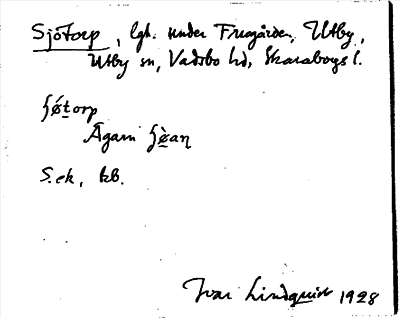 Sjötorp, lgh. under Frugården, Utby,
Utby sn, Vadsbo hd, Skaraborgs l.
Ägarn
S. ek, kb.
Ivar Lindquist 1928